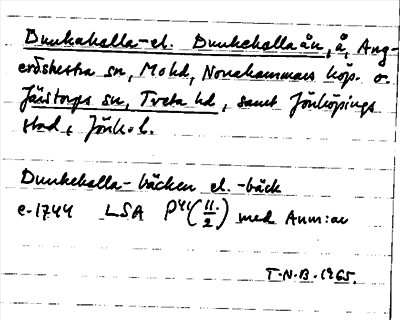 Dunkahalla- el. Dunkehallaån, å, Ång-
erdshestra sn, Mo hd, Norrahammars köp. o.
Järstorps sn, Tveta hd, samt Jönköpings
stad, Jönk. l.
Dunkehalla-bäcken el. -bäck
c. 1744 LSA P41 (11/2) med Anm:ar
T.N.B. 1965.